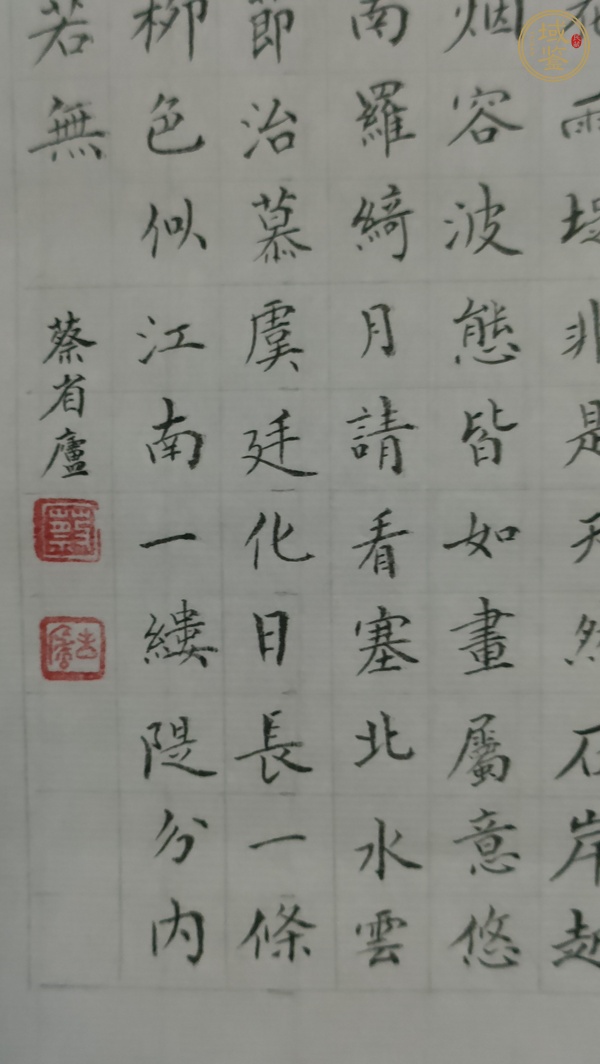 雨堤非是天然石岸起
烟容波態皆如畫屬意悠
南羅綺月請看塞北水雲
節治慕虞廷化日長一條
柳色似江南一縷隄分内
若無
蔡省廬
域鑒